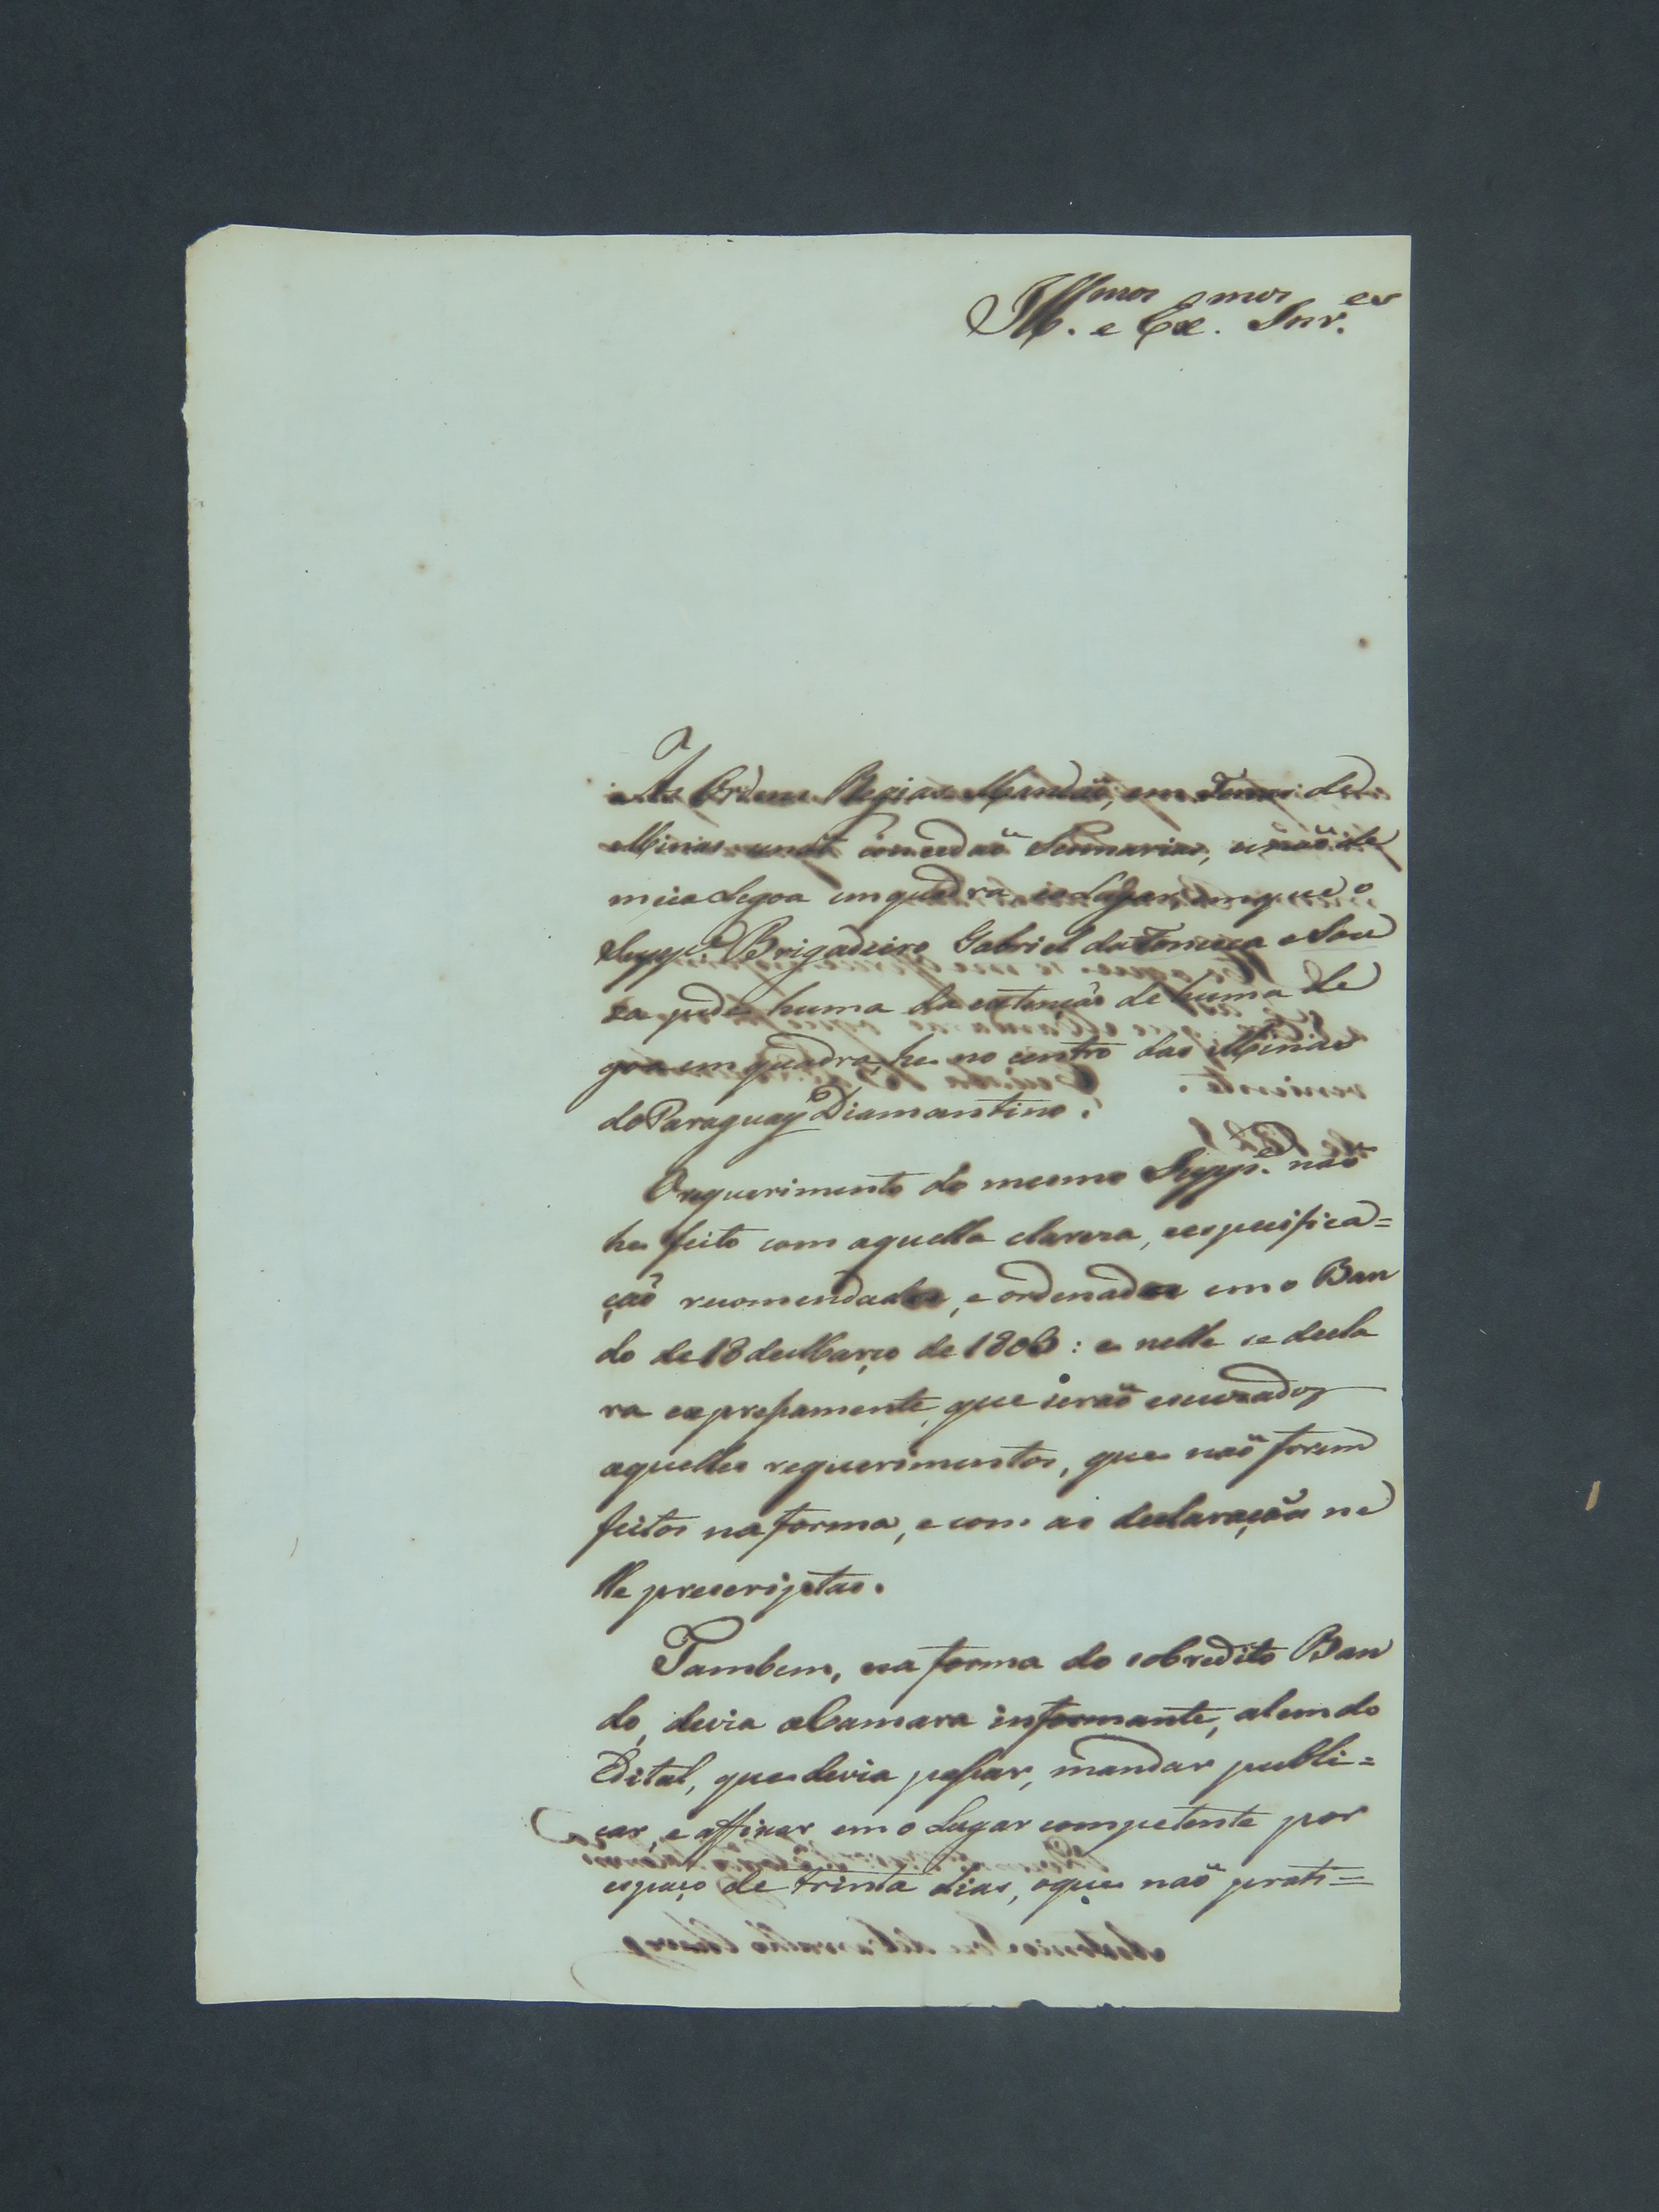 Ill.mos e Ex.mos Snr.es
As Ordens Regias Mandaõ, em Terras de
Minas concedaõ Sesmarias, senaõ de
meia Legoa em quadra, e o Lugar, em que o
Supp.e Brigadeiro Gabriel da Fonseca e Sou
za pede huma da extençaõ de huma Le
goa em quadra, he no centro das Minas
do Paraguay Diamantino.
O requerimento do mesmo Supp.e naõ
he feito com aquella clareza, e especifica=
çaõ recomendadas, e ordenadas em o Ban
do de 18 de Março de 1803: e nelle se decla
ra expressamente, que seraõ escuzados
aquelles requerimentos, que naõ forem
feitos na forma, e com as declaraçoẽs ne
lle prescriptas.
Tambem, na forma do sobredito Ban
do, devia a Camara informante, alem do
Edital, que devia passar, mandar publi=
car, e affixar em o Lugar competente por
espaço de trinta dias, o que naõ prati=